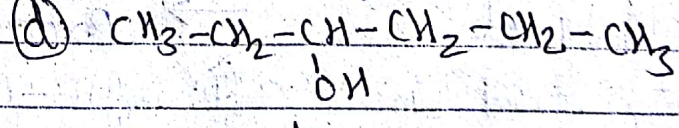 (d) CH₃-CH₂-CH-CH₂-CH₂-CH₃
OH